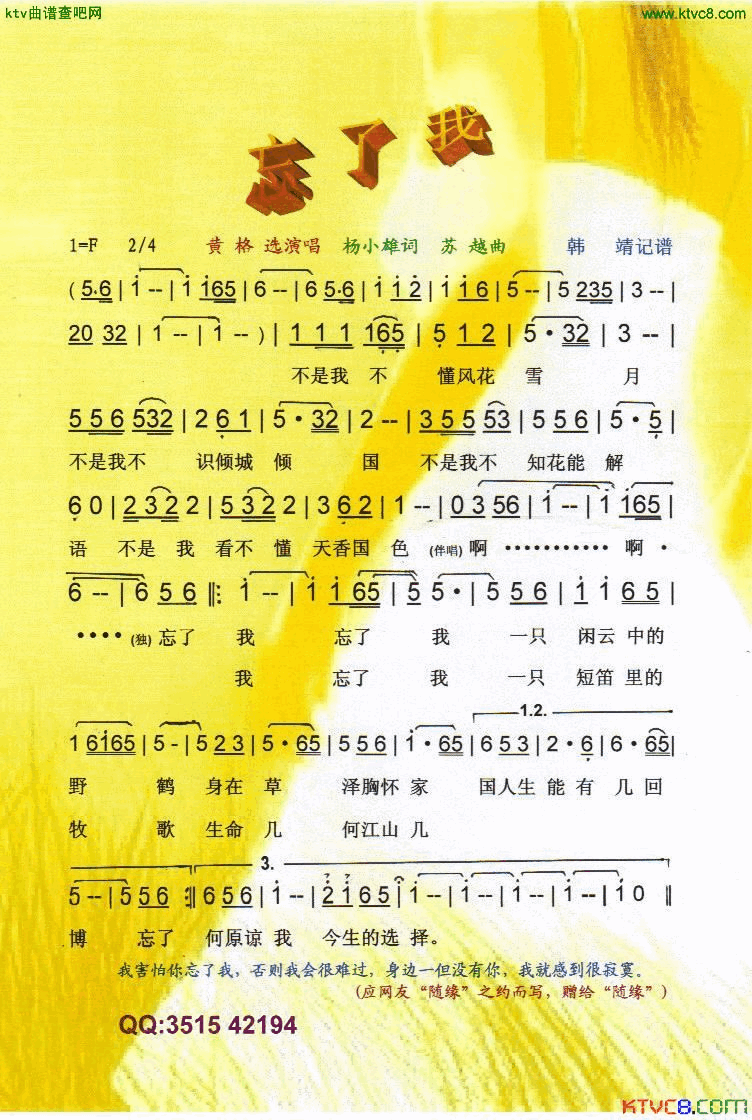 ktv曲谱查吧网
www.ktvc8.com
忘了我
1=F 2/4 黄 格 选演唱 杨小雄词 苏 越曲 韩 靖记谱
( 5·6 | 1 -- | 1 165 | 6 -- | 6 5·6 | 1 1 2 | 1 1 6 | 5 -- | 5 235 | 3 -- |
20 32 | 1 -- | 1 -- ) | 1 1 1 165 | 5 1 2 | 5 · 32 | 3 -- |
不是我 不 懂风花 雪 月
5 5 6 532 | 2 6 1 | 5 · 32 | 2 -- | 3 5 5 53 | 5 5 6 | 5 · 5 |
不是我不 识倾城 倾 国 不是我不 知花能 解
6 0 | 2 3 2 2 | 5 3 2 2 | 3 6 2 | 1 -- | 0 3 56 | 1 -- | 1 165 |
语 不是 我 看不 懂 天香国 色 (伴唱) 啊 ··········· 啊 ·
6 -- | 6 5 6 ‖: 1 -- | 1 1 65 | 5 5 · | 5 5 6 | 1 1 6 5 |
···· (独) 忘了 我 忘了 我 一只 闲云 中的
我 忘了 我 一只 短笛 里的
1.2.
1 6165 | 5 - | 5 2 3 | 5 · 65 | 5 5 6 | 1 · 65 | 6 5 3 | 2 · 6 | 6 · 65 |
野 鹤 身在 草 泽胸怀 家 国人生 能 有 几 回
牧 歌 生命 几 何江山 几
3.
5 -- | 5 5 6 :‖ 6 5 6 | 1 -- | 2 1 6 5 | 1 -- | 1 -- | 1 -- | 1 -- | 1 0 ‖
博 忘了 何原谅 我 今生的 选 择。
我害怕你忘了我，否则我会很难过，身边一但没有你，我就感到很寂寞。
(应网友“随缘”之约而写，赠给“随缘”)
QQ:3515 42194
KTVC8.COM